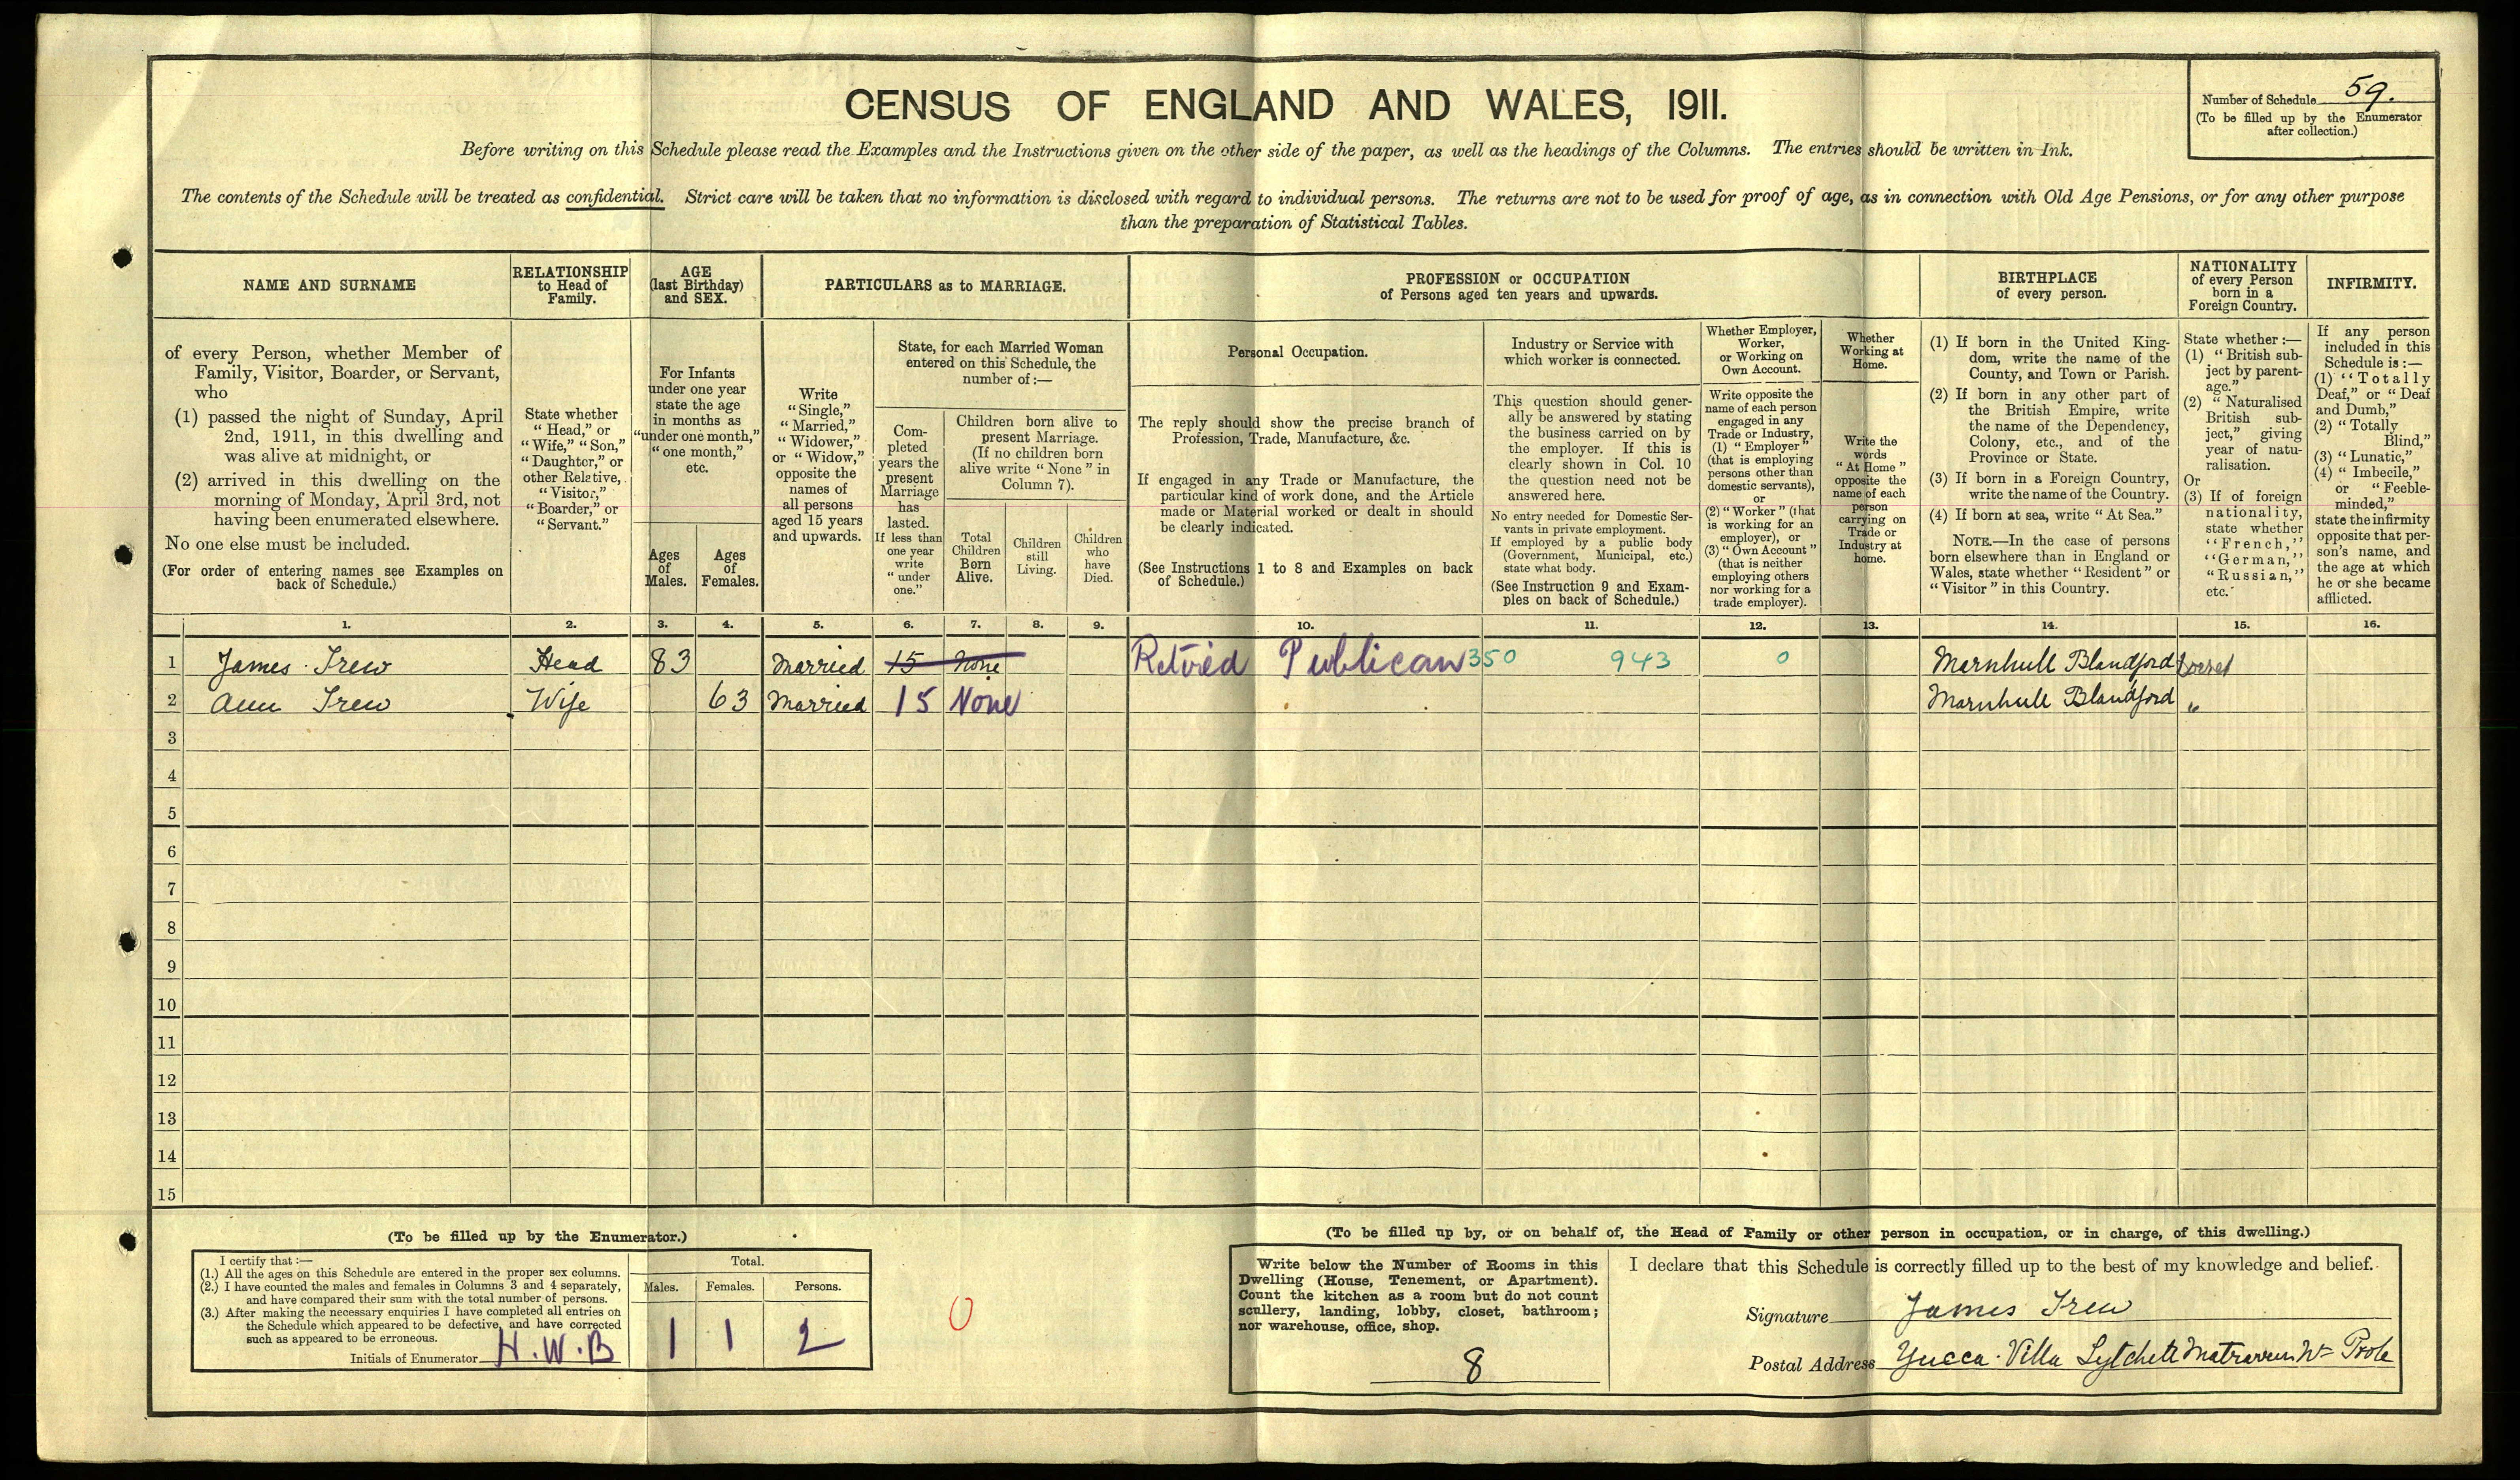 CENSUS OF ENGLAND AND WALES, 1911.
Number of Schedule 59.
(To be filled up by the Enumerator
after collection.)
Before writing on this Schedule please read the Examples and the Instructions given on the other side of the paper, as well as the headings of the Columns. The entries should be written in Ink.
The contents of the Schedule will be treated as confidential. Strict care will be taken that no information is disclosed with regard to individual persons. The returns are not to be used for proof of age, as in connection with Old Age Pensions, or for any other purpose
than the preparation of Statistical Tables.
NAME AND SURNAME
of every Person, whether Member of
Family, Visitor, Boarder, or Servant,
who
(1) passed the night of Sunday, April
2nd, 1911, in this dwelling and
was alive at midnight, or
(2) arrived in this dwelling on the
morning of Monday, April 3rd, not
having been enumerated elsewhere.
No one else must be included.
(For order of entering names see Examples on
back of Schedule.)
RELATIONSHIP
to Head of
Family.
State whether
"Head," or
"Wife," "Son,"
"Daughter," or
other Relative,
"Visitor,"
"Boarder," or
"Servant."
AGE
(last Birthday)
and SEX.
For Infants
under one year
state the age
in months as
"under one month,"
"one month,"
etc.
Ages
of
Males.
Ages
of
Females.
PARTICULARS as to MARRIAGE.
Write
"Single,"
"Married,"
"Widower,"
or "Widow,"
opposite the
names of
all persons
aged 15 years
and upwards.
State, for each Married Woman
entered on this Schedule, the
number of:—
Com-
pleted
years the
present
Marriage
has
lasted.
If less than
one year
write
"under
one."
Children born alive to
present Marriage.
(If no children born
alive write "None" in
Column 7).
Total
Children
Born
Alive.
Children
still
Living.
Children
who
have
Died.
PROFESSION or OCCUPATION
of Persons aged ten years and upwards.
Personal Occupation.
The reply should show the precise branch of
Profession, Trade, Manufacture, &c.
If engaged in any Trade or Manufacture, the
particular kind of work done, and the Article
made or Material worked or dealt in should
be clearly indicated.
(See Instructions 1 to 8 and Examples on back
of Schedule.)
Industry or Service with
which worker is connected.
This question should gener-
ally be answered by stating
the business carried on by
the employer. If this is
clearly shown in Col. 10
the question need not be
answered here.
No entry needed for Domestic Ser-
vants in private employment.
If employed by a public body
(Government, Municipal, etc.)
state what body.
(See Instruction 9 and Exam-
ples on back of Schedule.)
Whether Employer,
Worker,
or Working on
Own Account.
Write opposite the
name of each person
engaged in any
Trade or Industry,
(1) "Employer"
(that is employing
persons other than
domestic servants),
or
(2) "Worker" (that
is working for an
employer), or
(3) "Own Account"
(that is neither
employing others
nor working for a
trade employer).
Whether
Working at
Home.
Write the
words
"At Home"
opposite the
name of each
person
carrying on
Trade or
Industry at
home.
BIRTHPLACE
of every person.
(1) If born in the United King-
dom, write the name of the
County, and Town or Parish.
(2) If born in any other part of
the British Empire, write
the name of the Dependency,
Colony, etc., and of the
Province or State.
(3) If born in a Foreign Country,
write the name of the Country.
(4) If born at sea, write "At Sea."
NOTE.—In the case of persons
born elsewhere than in England or
Wales, state whether "Resident" or
"Visitor" in this Country.
NATIONALITY
of every Person
born in a
Foreign Country.
State whether:—
(1) "British sub-
ject by parent-
age."
(2) "Naturalised
British sub-
ject," giving
year of natu-
ralisation.
Or
(3) If of foreign
nationality,
state whether
"French,"
"German,"
"Russian,"
etc.
INFIRMITY.
If any person
included in this
Schedule is:—
(1) "Totally
Deaf," or "Deaf
and Dumb,"
(2) "Totally
Blind,"
(3) "Lunatic,"
(4) "Imbecile,"
or "Feeble-
minded,"
state the infirmity
opposite that per-
son's name, and
the age at which
he or she became
afflicted.
1. 2. 3. 4. 5. 6. 7. 8. 9. 10. 11. 12. 13. 14. 15. 16.
1 James Trew Head 83 Married 15 None Retired Publican 350 943 0 Marnhull Blandford Dorset
2 Ann Trew Wife 63 Married 15 None Marnhull Blandford "
3
4
5
6
7
8
9
10
11
12
13
14
15
(To be filled up by the Enumerator.)
I certify that:—
(1.) All the ages on this Schedule are entered in the proper sex columns.
(2.) I have counted the males and females in Columns 3 and 4 separately,
and have compared their sum with the total number of persons.
(3.) After making the necessary enquiries I have completed all entries on
the Schedule which appeared to be defective, and have corrected
such as appeared to be erroneous.
Initials of Enumerator H.W.B
Total.
Males. Females. Persons.
1 1 2
0
(To be filled up by, or on behalf of, the Head of Family or other person in occupation, or in charge, of this dwelling.)
Write below the Number of Rooms in this
Dwelling (House, Tenement, or Apartment).
Count the kitchen as a room but do not count
scullery, landing, lobby, closet, bathroom;
nor warehouse, office, shop.
8
I declare that this Schedule is correctly filled up to the best of my knowledge and belief.
Signature James Trew
Postal Address Yucca Villa Lytchett Matravers Nr Poole